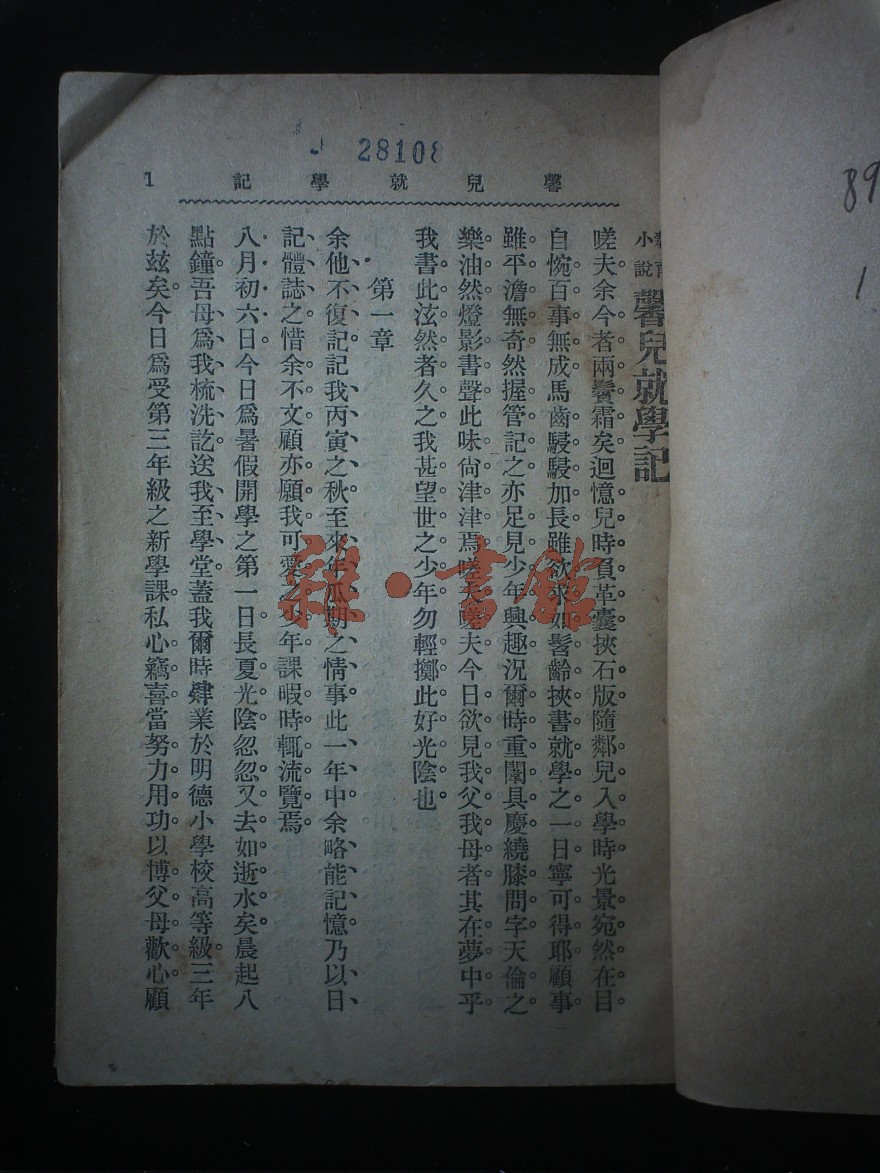 28108
馨兒就學記 1
教育小說 馨兒就學記
嗟夫余今者兩鬢霜矣迴憶兒時負革囊挾石版隨鄰兒入學時光景宛然在目
自惋百事無成馬齒駸駸加長雖欲求如髫齡挾書就學之一日寧可得耶顧事
雖平澹無奇然握管記之亦足見少年興趣況爾時重闈具慶繞膝問字天倫之
樂油然燈影書聲此味尙津津焉嗟夫嗟夫今日欲見我父我母者其在夢中乎
我書此泫然者久之我甚望世之少年勿輕擲此好光陰也
第一章
余他不復記記我丙寅之秋至來年瓜期之情事此一年中余略能記憶乃以日
記體誌之惜余不文顧亦願我可愛之少年課暇時輒流覽焉
八月初六日今日爲暑假開學之第一日長夏光陰忽忽又去如逝水矣晨起八
點鐘吾母爲我梳洗訖送我至學堂蓋我爾時肄業於明德小學校高等級三年
於玆矣今日爲受第三年級之新學課私心竊喜當努力用功以博父母歡心顧
雜·書館
89
1